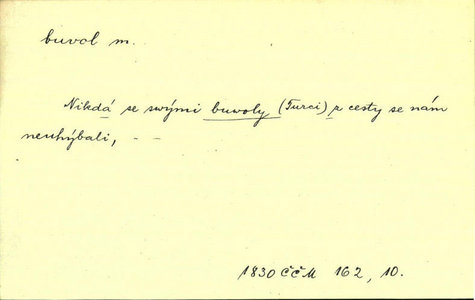 buvol m.
Nikdá se swými buwoly (Turci) z cesty se nám
neuhýbali, – –
1830 ČČM 162, 10.